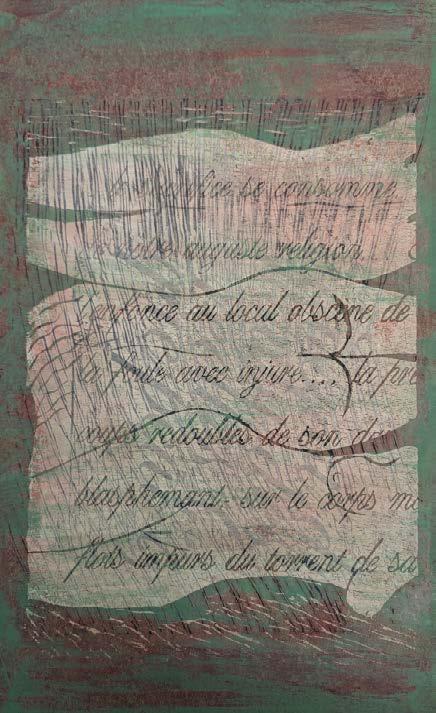 se consomme
auguste religion
l'enfonce au local obscène de
la foule avec injure.... la pre
corps redoublés de son da
blasphémant sur le corps mo
flots impurs du torrent de sa